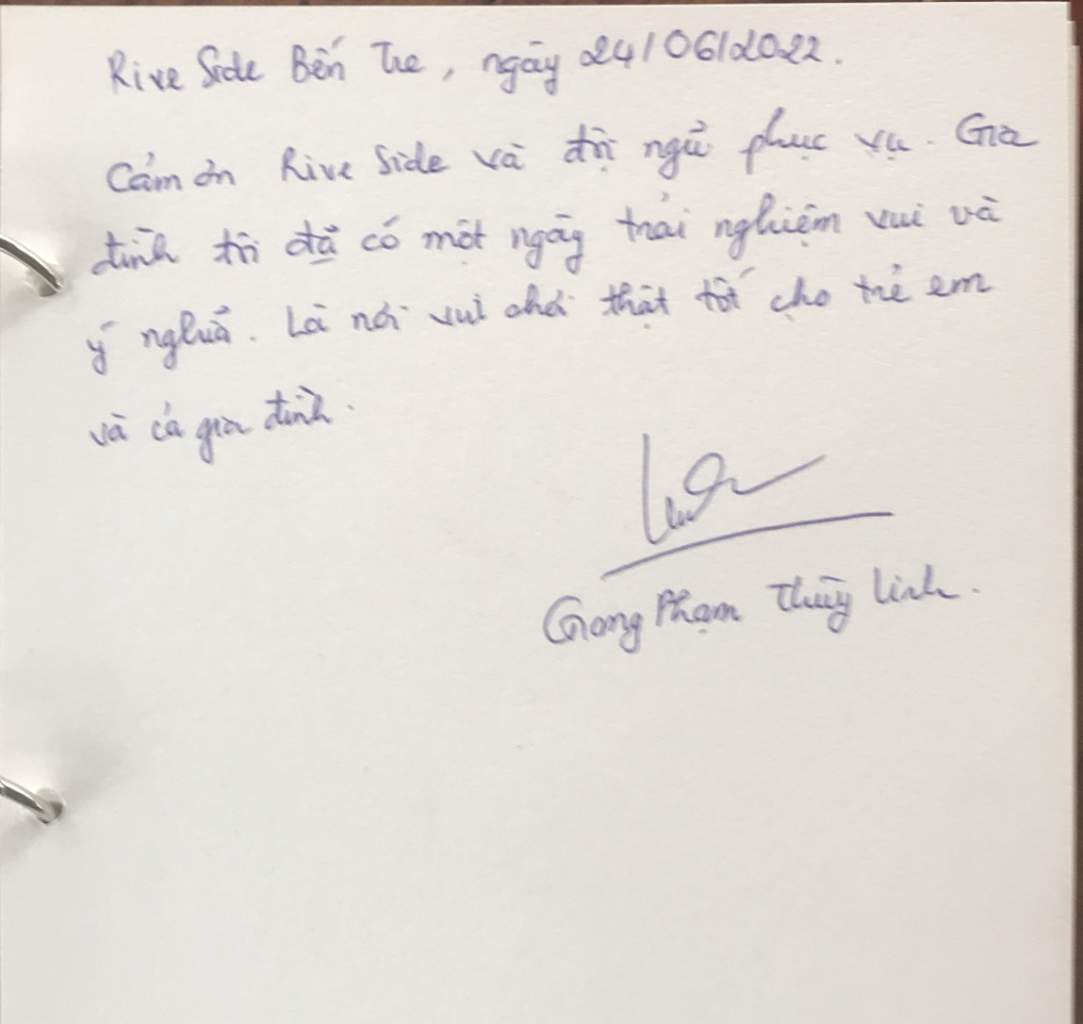 Rive Side Bến Tre, ngày 24/06/2022.
Cảm ơn Rive Side và đội ngũ phục vụ. Gia
đình tôi đã có một ngày trải nghiệm vui và
ý nghĩa. Là nơi vui chơi thật tốt cho trẻ em
và cả gia đình.
Giang Phạm Thùy Linh.